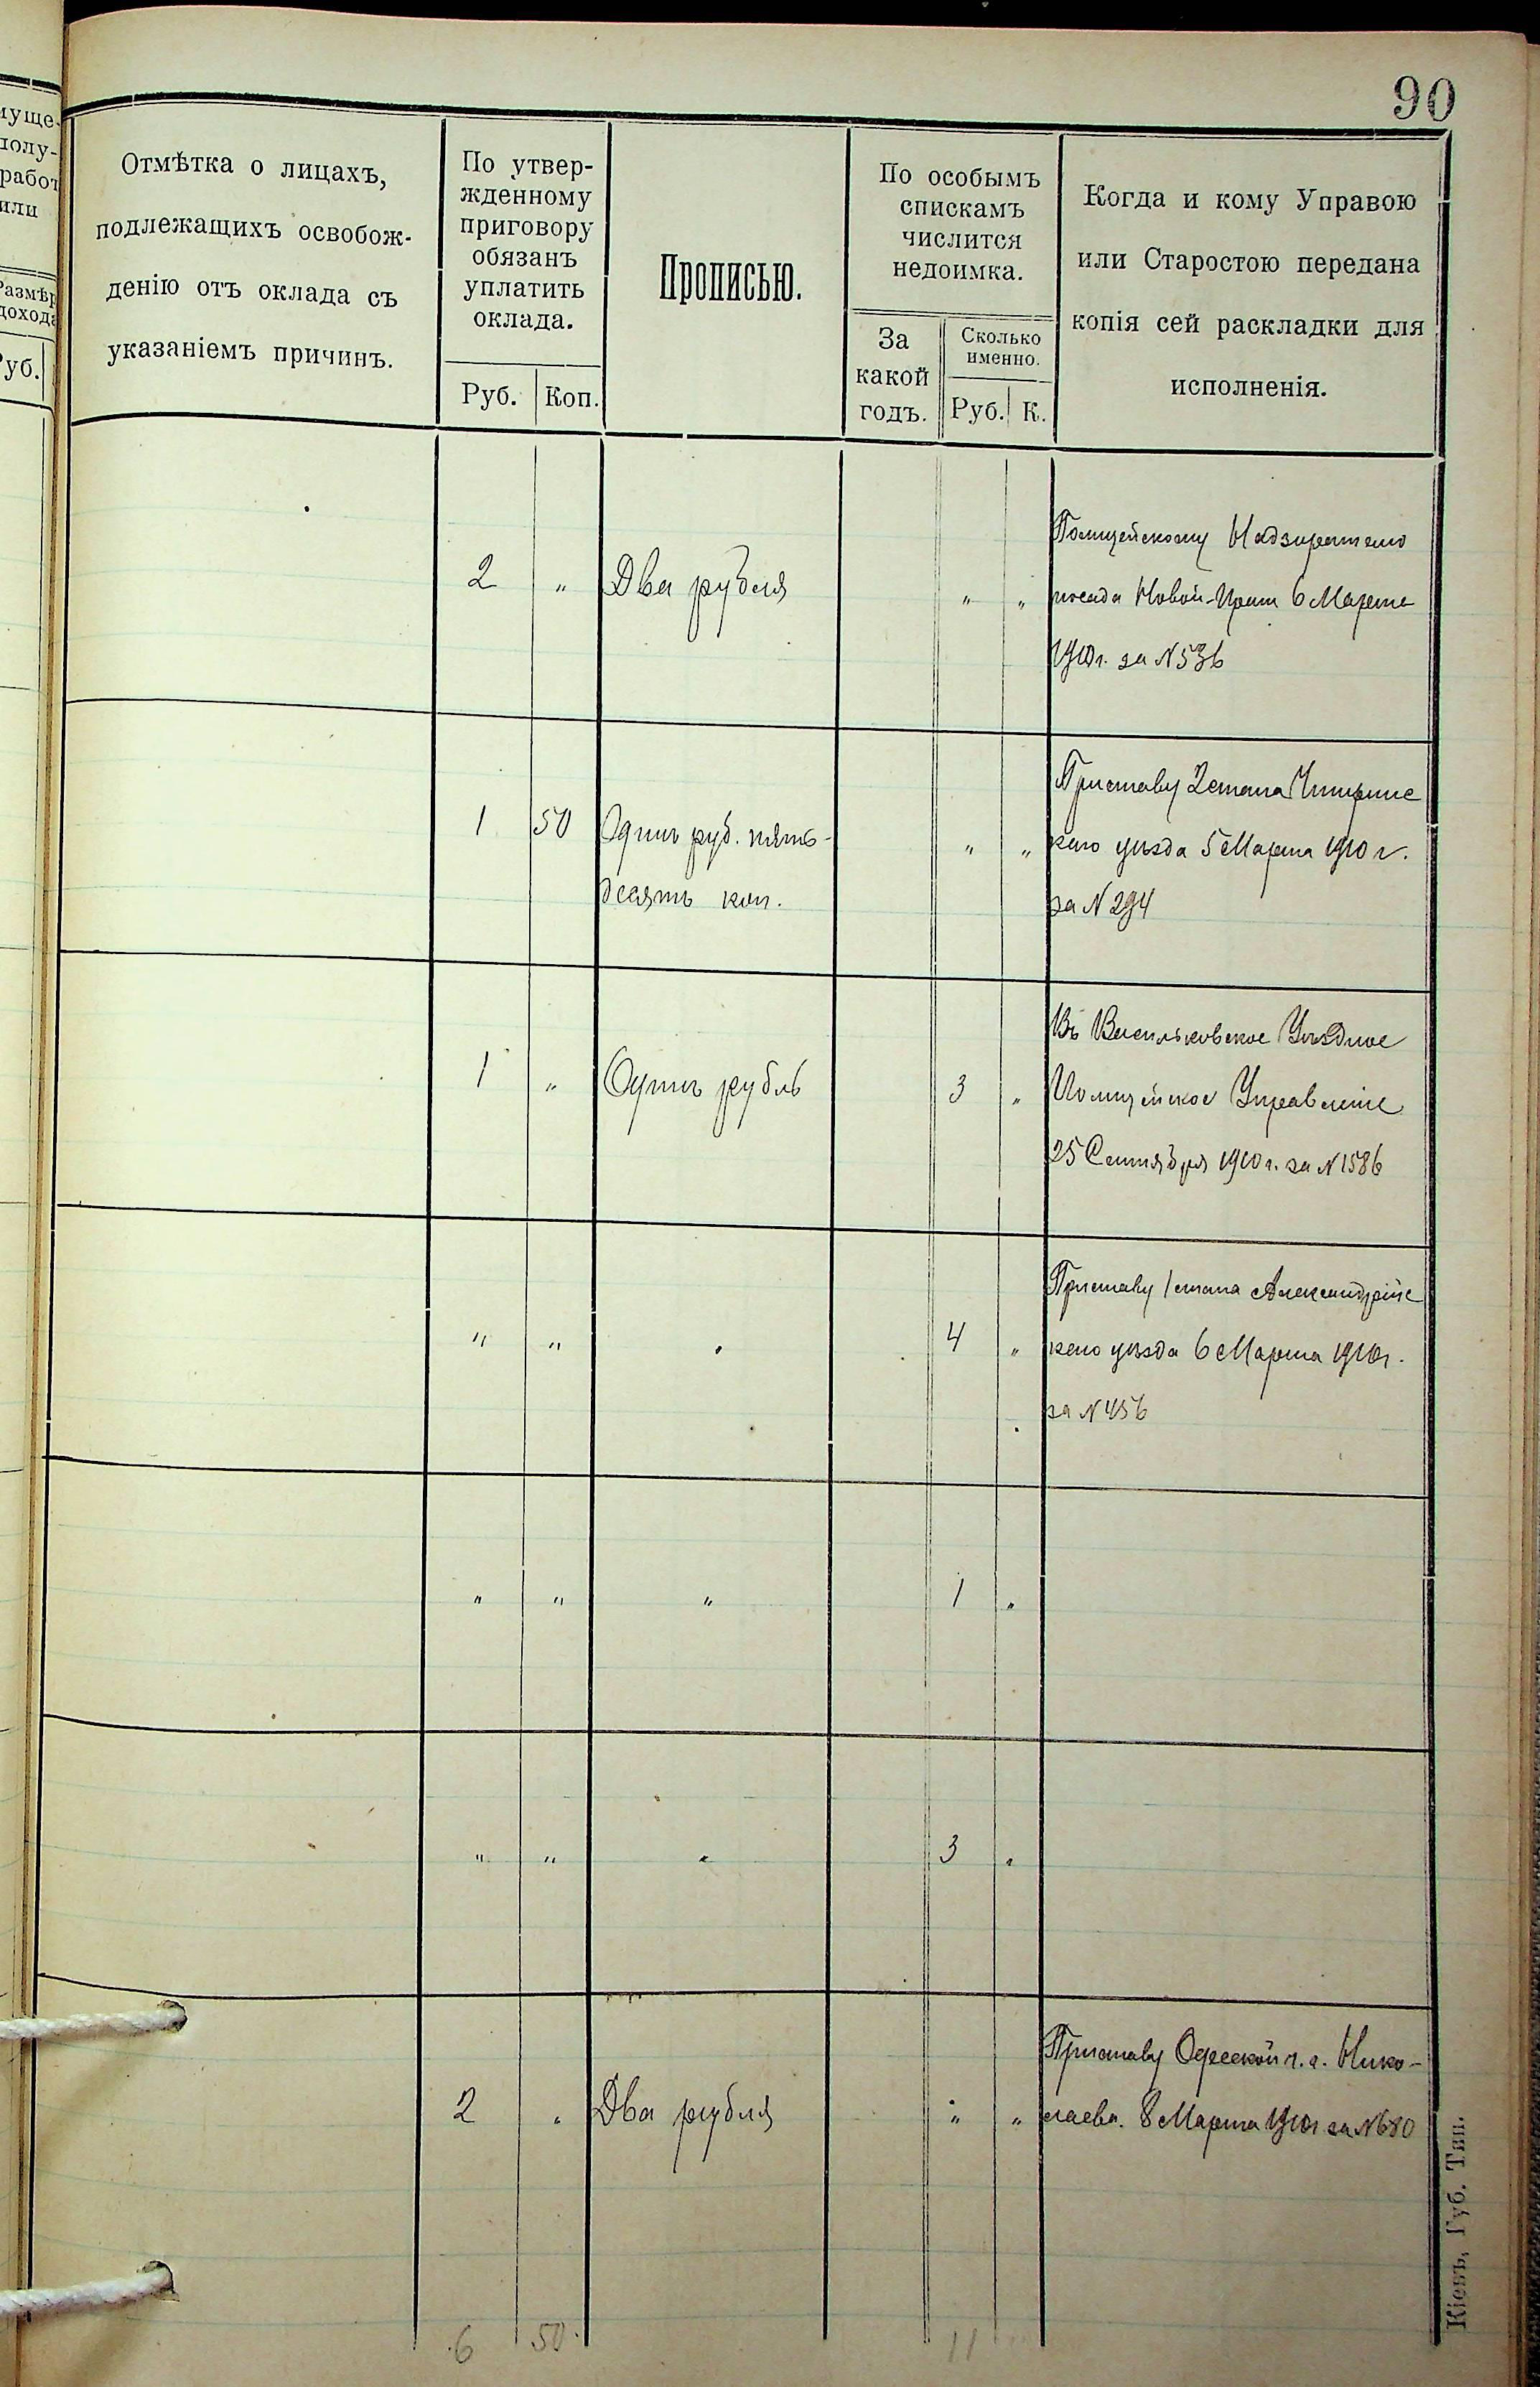 90
муще-
полу-
работ
или
Размѣр
дохода
Руб.
Отмѣтка о лицахъ,
подлежащихъ освобож-
денію отъ оклада съ
указаніемъ причинъ.
По утвер-
жденному
приговору
обязанъ
уплатить
оклада.
Руб.
Коп.
Прописью.
По особымъ
спискамъ
числится
недоимка.
За
какой
годъ.
Сколько
именно.
Руб.
К.
Когда и кому Управою
или Старостою передана
копія сей раскладки для
исполненія.
2 " Два рубля " "
Полицейскому Надзирателю
посада Новой-Праги 6 Марта
1910 г. за N 536
1 50 Одинъ руб. пять-
десятъ коп.
" "
Приставу 2 стана Чигиринс
каго уѣзда 5 Марта 1910 г.
за N 294
1 " Одинъ рубль 3 "
Въ Васильковское Уѣздное
Полицейское Управленіе
25 Сентября 1910 г. за N 1586
" " " 4 "
Приставу 1 стана Александрійс
каго уѣзда 6 Марта 1910 г.
за N 456
" " " 1 "
" " " 3 "
2 " Два рубля " "
Приставу Одесской ч. г. Нико-
лаева. 8 Марта 1910 г за N 680
6 50 11
Кіевъ, Губ. Тип.